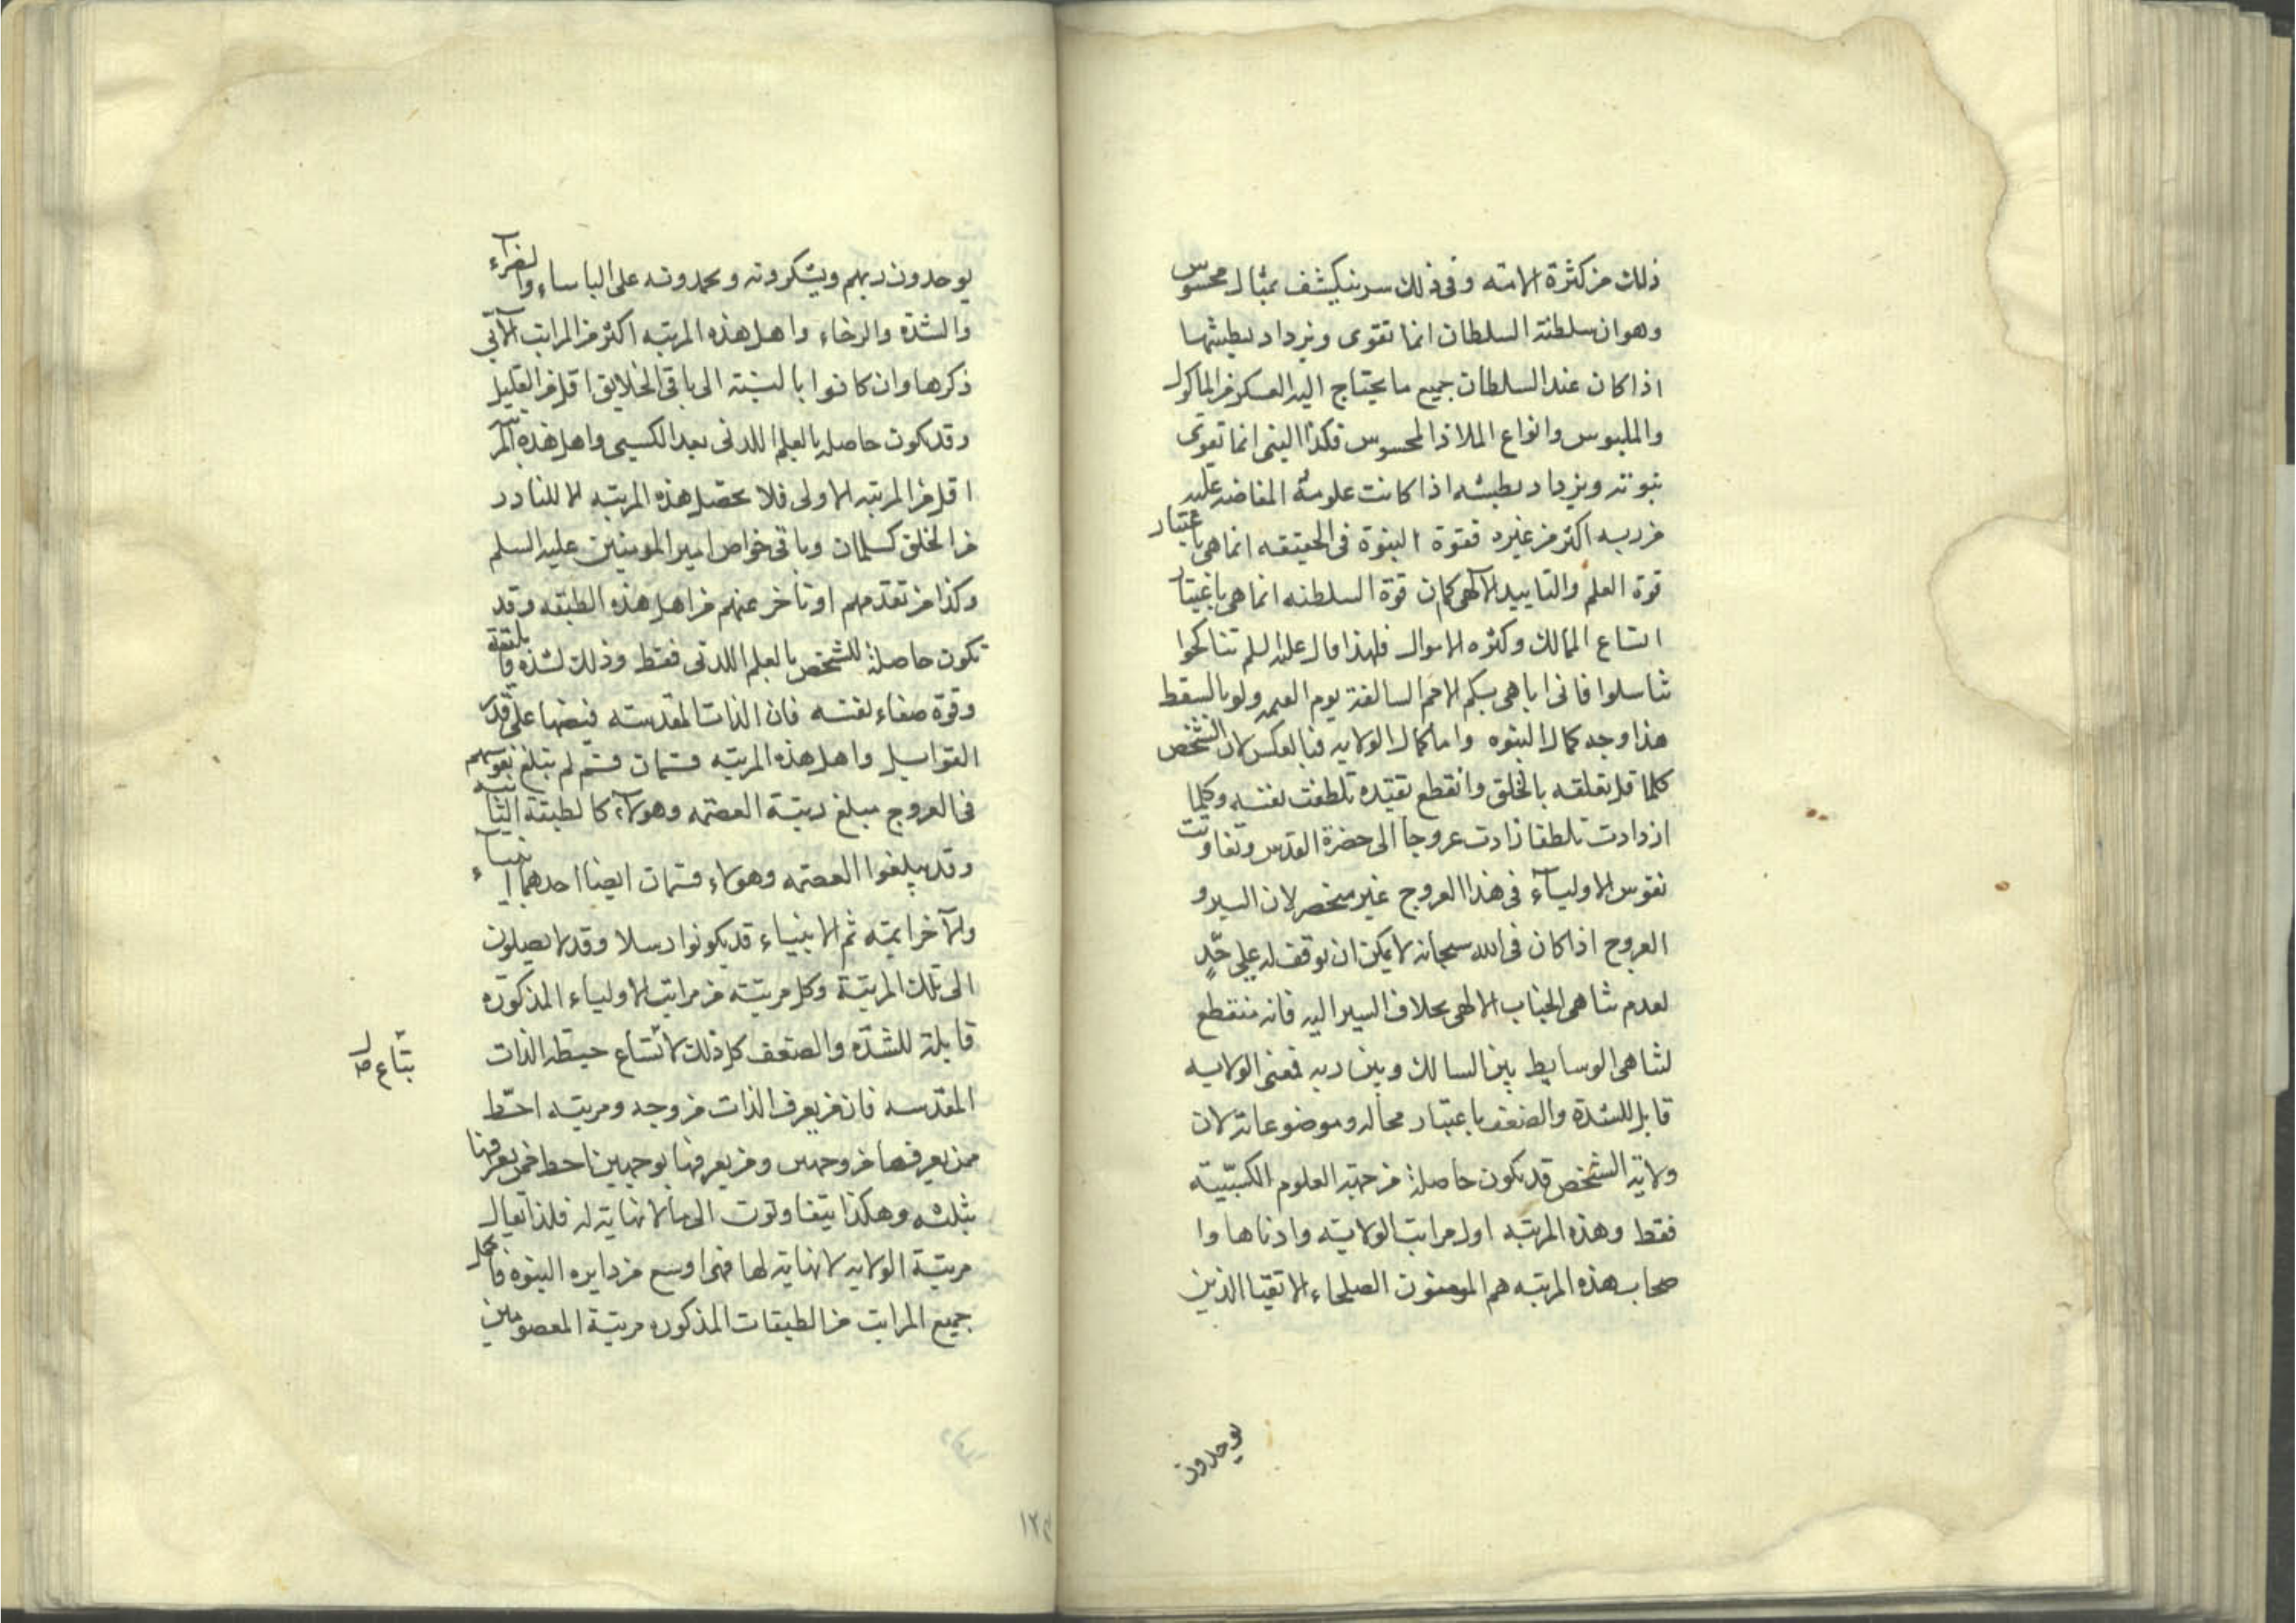 ذلك من كثرة الامته وفى ذلك سر ينكشف بمثال محسوس
وهو ان سلطنة السلطان انما تقوى ويزداد بطيشها
اذا كان عند السلطان جميع ما يحتاج اليه العسكر من الماكول
والملبوس وانواع الملاذ المحسوس فكذا النبى انما تقوى
نبوته ويزداد بطيشه اذا كانت علومه المفاضه عليه
من ربه اكثر من غيره فقوة النبوة فى الحقيقه انما هى باعتبار
قوة العلم والتاييد الالهى كما ان قوة السلطنه انما هى باعتبار
اتساع الممالك وكثره الاموال فلهذا قال عليه السلم تناكحوا
تناسلوا فانى اباهى بكم الامم السالفة يوم القيمه ولو بالسقط
هذا وجه كمال النبوه واما كمال الولايه فبالعكس لان الشخص
كلما قل تعلقه بالخلق وانقطع تقيده تلطفت نفسه وكلما
ازدادت تلطفا زادت عروجا الى حضرة القدس وتفاوتت
نفوس الاولياء فى هذا العروج غير منحصر لان السير و
العروج اذا كان فى الله سبحانه لا يمكن ان يوقف له على حدٍ
لعدم تناهى الجناب الالهى بخلاف السير اليه فانه منقطع
لتناهى الوسايط بين السالك وبين ربه فمعنى الولايه
قابل للشدة والضعف باعتبار محاله وموضوعاته لان
ولاية الشخص قد يكون حاصلة من جهة العلوم الكسبيّة
فقط وهذه المرتبه اول مراتب الولايته وادناها وا
صحاب هذه المرتبه هم المومنون الصلحاء الاتقيا الذين
يوحدون
يوحدون ربهم ويشكرونه ويحمدونه على الباساء والضراء
والشدة والرخاء واهل هذه المرتبه اكثر من المراتب الاتى
ذكرها وان كانوا بالنسبته الى باقى الخلايق اقل من القليل
وقد يكون حاصله بالعلم اللدنى بعد الكسبى واهل هذه المر
اقل من المرتبه الاولى فلا يحصل هذه المرتبه الا للنادر
من الخلق كسلمان وباقى خواص امير المومنين عليه السلم
وكذا من تقدمهم او تاخر عنهم من اهل هذه الطبقه وقد
تكون حاصلة للشخص بالعلم اللدنى فقط وذلك لشدة
وقوة صفاء نفسه فان الذات المقدسته فيضها على قدر
القوابل واهل هذه المرتبه قسمان قسم لم تبلغ نفوسهم
فى العروج مبلغ رتبة العصمه وهولاء كالطبقة الثانيه
وقد يبلغوا العصمه وهولاء قسمان ايضا احدهما انبياء
والآخر ايمته ثم الانبياء قد يكونوا رسلا وقد لا يصلون
الى تلك المرتبة وكل مرتبته من مراتب الاولياء المذكوره
قابلة للشدّه والضعف كل ذلك لاتساع حيطه الذات
بتّاع صل
المقدسه فان من يعرف الذات من وجه ومرتبته احط
ممن يعرفها من وجهين ومن يعرفها بوجهين احط ممن يعرفها
بثلثه وهكذا يتفاوتون الى ما لا نهاية له فلذا يقال
مرتبة الولايه لا نهاية لها فهى اوسع من دايره النبوه فاكمل
جميع المراتب من الطبقات المذكوره مرتبة المعصومين